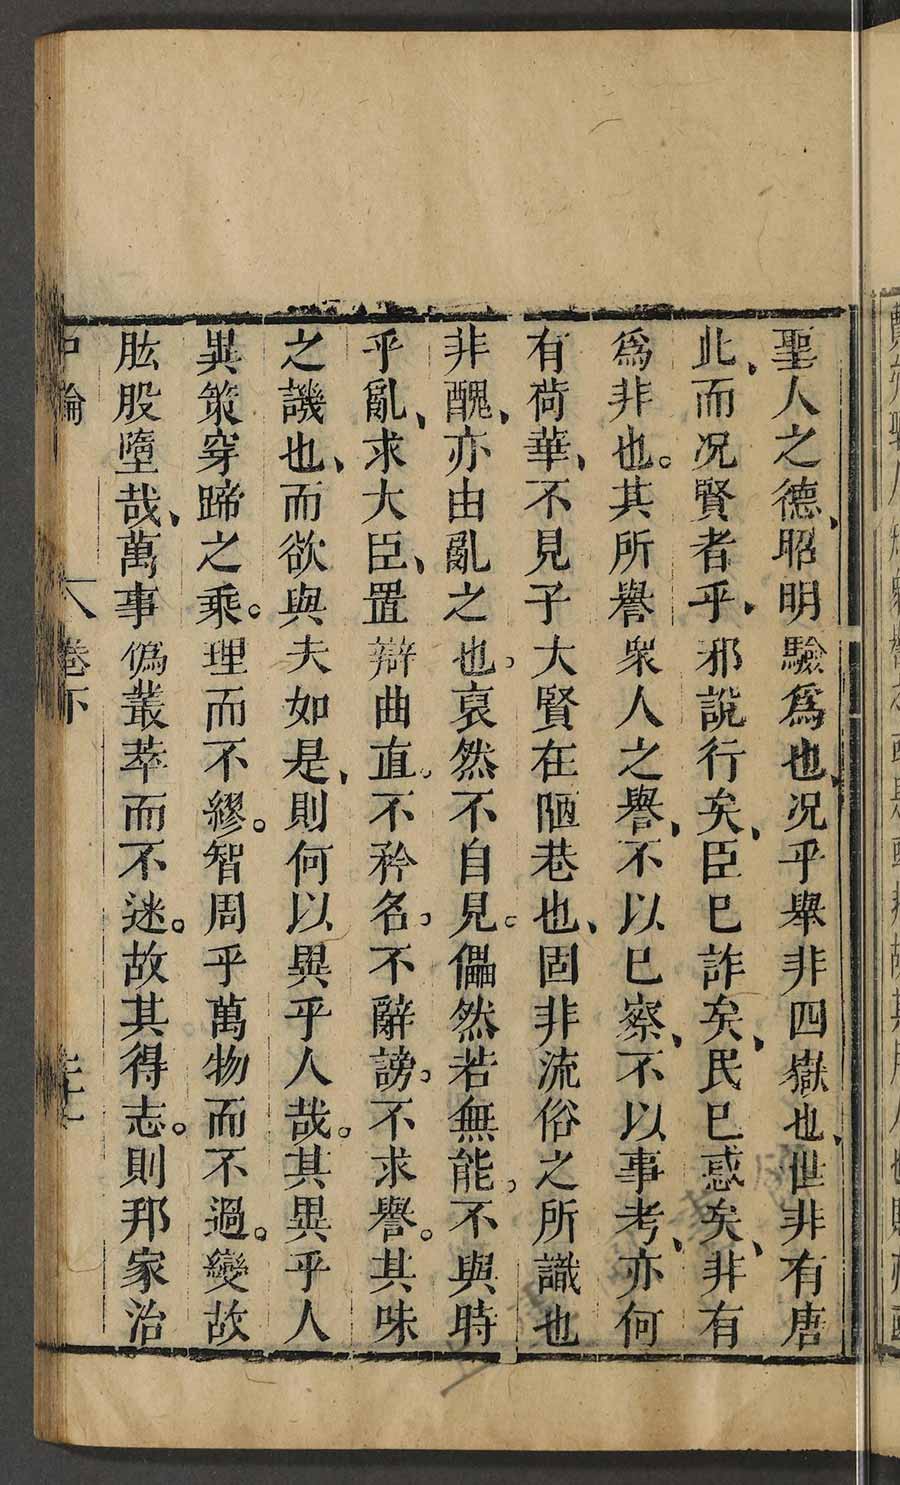 聖人之德、昭明驗爲也、况乎舉非四嶽也、世非有唐
此、而况賢者乎、邪說行矣、臣已詐矣、民已惑矣、非有
爲非也。其所譽衆人之譽、不以已察、不以事考、亦何
有荷華、不見子大賢在陋巷也、固非流俗之所識也
非醜、亦由亂之也。哀然不自見。儡然若無能。不與時
乎亂、求大臣、置辯曲直。不矜名。不辭謗。不求譽。其味
之譏也、而欲與夫如是、則何以異乎人哉。其異乎人
異策穿蹄之乘。理而不繆。智周乎萬物而不過。變故
肱股墮哉、萬事僞叢萃而不迷。故其得志。則邦家治
中論 卷下